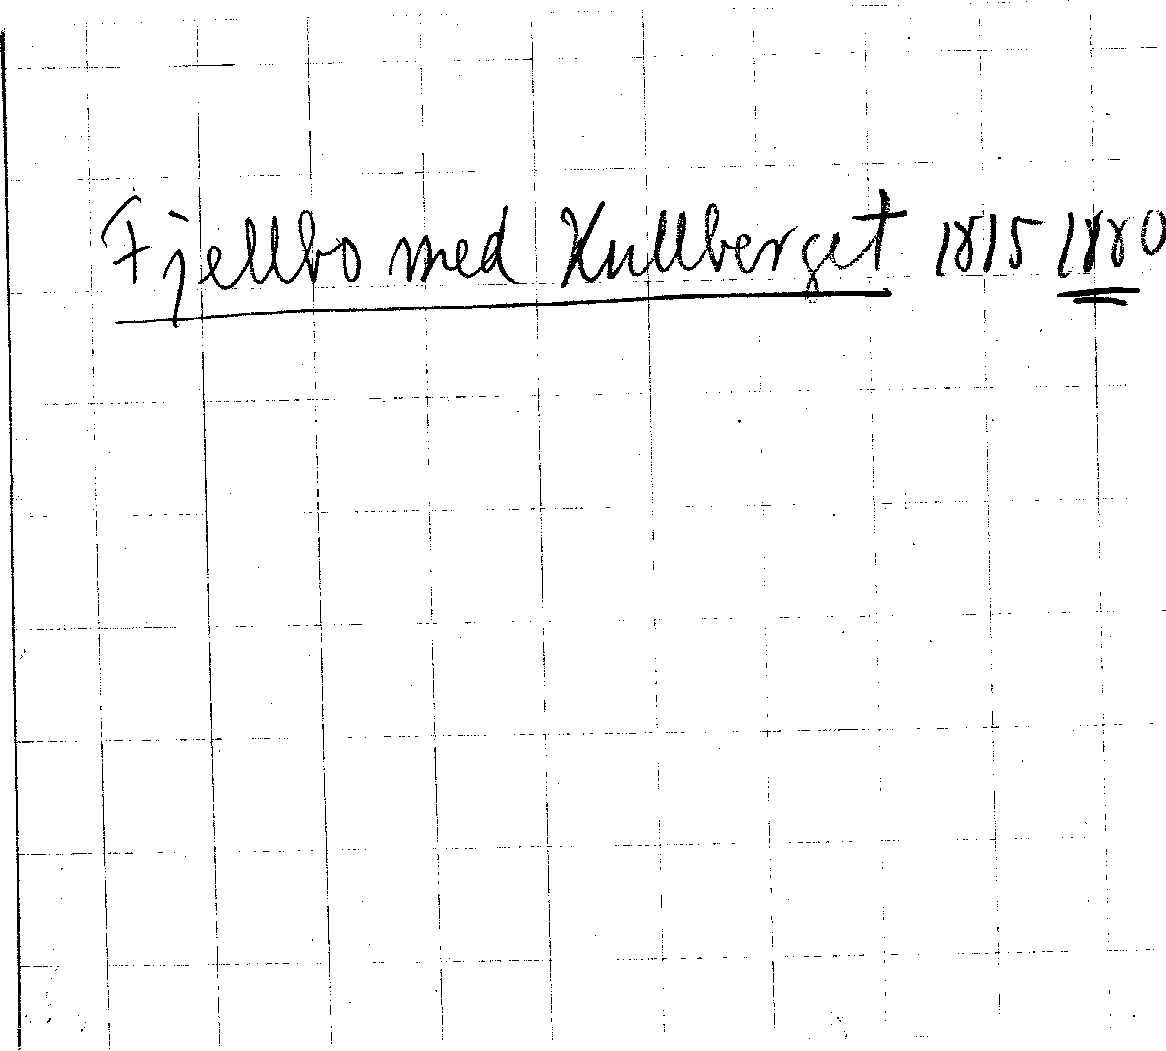 Fjellbo med Kullberget 1815 1880